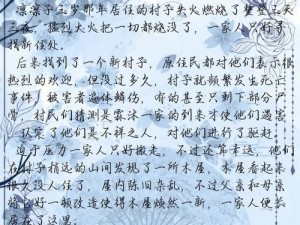 凛凛子三岁那年居住的村子失火燃烧了整整三天
三夜，猛烈火把一切都烧没了，一家人只好寻
找新住处。
后来找到了一个新村子，原住民都对他们表示很
热烈的欢迎，但没过多久，村子就频繁发生死亡
事件，被害者遍体鳞伤，有的甚至只剩下部分尸
骨，村民们猜测是霖沐一家的到来才使他们遇害
，认定了他们是不祥之人，对他们进行了驱赶。
迫于压力一家人只好搬走，不过还算幸运，他们
在村子稍远的山间发现了一所木屋，木屋看起来
很久没人住了，屋内陈旧杂乱，不过父亲和母亲
将它好一顿改造使得木屋焕然一新，一家人便长
居在了这里。